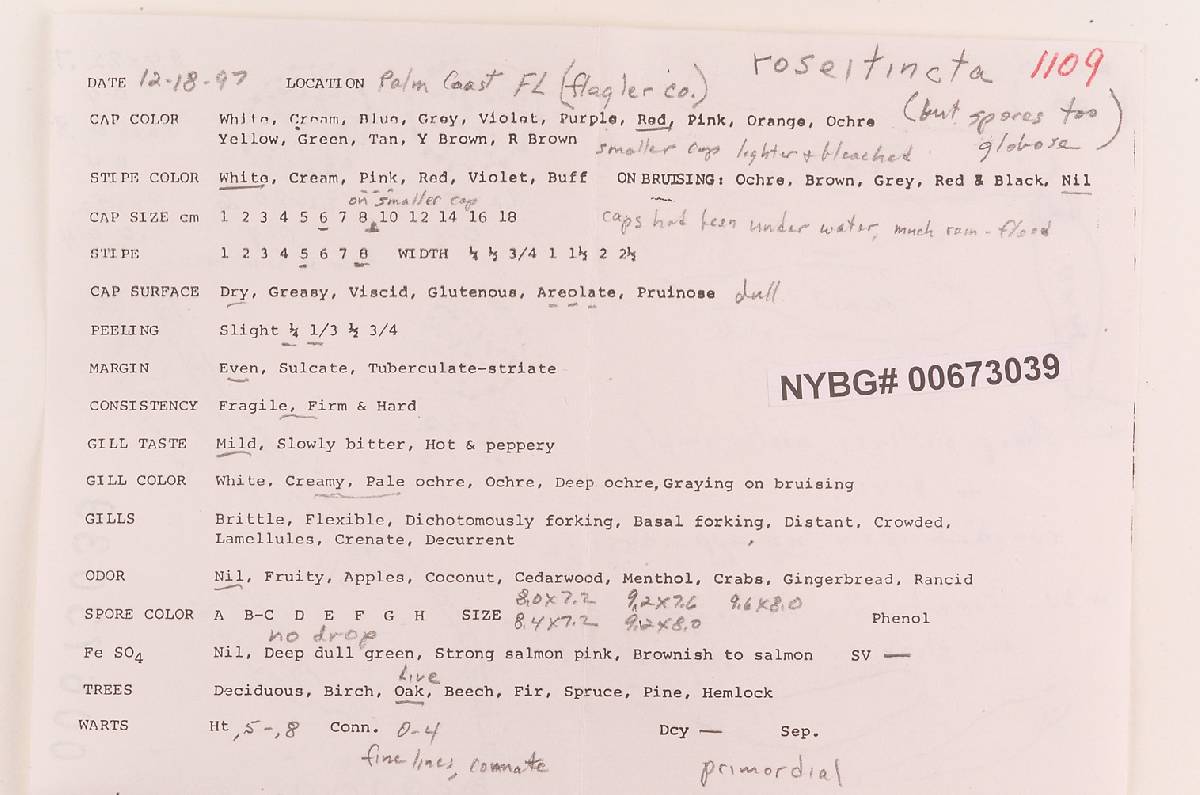 roseitincta 1109
DATE 12-18-97 LOCATION Palm Coast FL (flagler co.)
(but spores too globose)
CAP COLOR White, Cream, Blue, Grey, Violet, Purple, Red, Pink, Orange, Ochre
Yellow, Green, Tan, Y Brown, R Brown smaller caps lighter + bleached
STIPE COLOR White, Cream, Pink, Red, Violet, Buff ON BRUISING: Ochre, Brown, Grey, Red & Black, Nil
on smaller cap
CAP SIZE cm 1 2 3 4 5 6 7 8 10 12 14 16 18 caps had been under water, much rain - flood
STIPE 1 2 3 4 5 6 7 8 WIDTH ¼ ½ 3/4 1 1½ 2 2½
CAP SURFACE Dry, Greasy, Viscid, Glutenous, Areolate, Pruinose dull
PEELING Slight ¼ 1/3 ½ 3/4
MARGIN Even, Sulcate, Tuberculate-striate
NYBG# 00673039
CONSISTENCY Fragile, Firm & Hard
GILL TASTE Mild, Slowly bitter, Hot & peppery
GILL COLOR White, Creamy, Pale ochre, Ochre, Deep ochre, Graying on bruising
GILLS Brittle, Flexible, Dichotomously forking, Basal forking, Distant, Crowded,
Lamellules, Crenate, Decurrent
ODOR Nil, Fruity, Apples, Coconut, Cedarwood, Menthol, Crabs, Gingerbread, Rancid
8.0x7.2 9.2x7.6 9.6x8.0
SPORE COLOR A B-C D E F G H SIZE 8.4x7.2 9.2x8.0 Phenol
no drop
Fe SO4 Nil, Deep dull green, Strong salmon pink, Brownish to salmon SV —
Live
TREES Deciduous, Birch, Oak, Beech, Fir, Spruce, Pine, Hemlock
WARTS Ht .5-.8 Conn. 0-4 Dcy — Sep.
fine lines, connate primordial